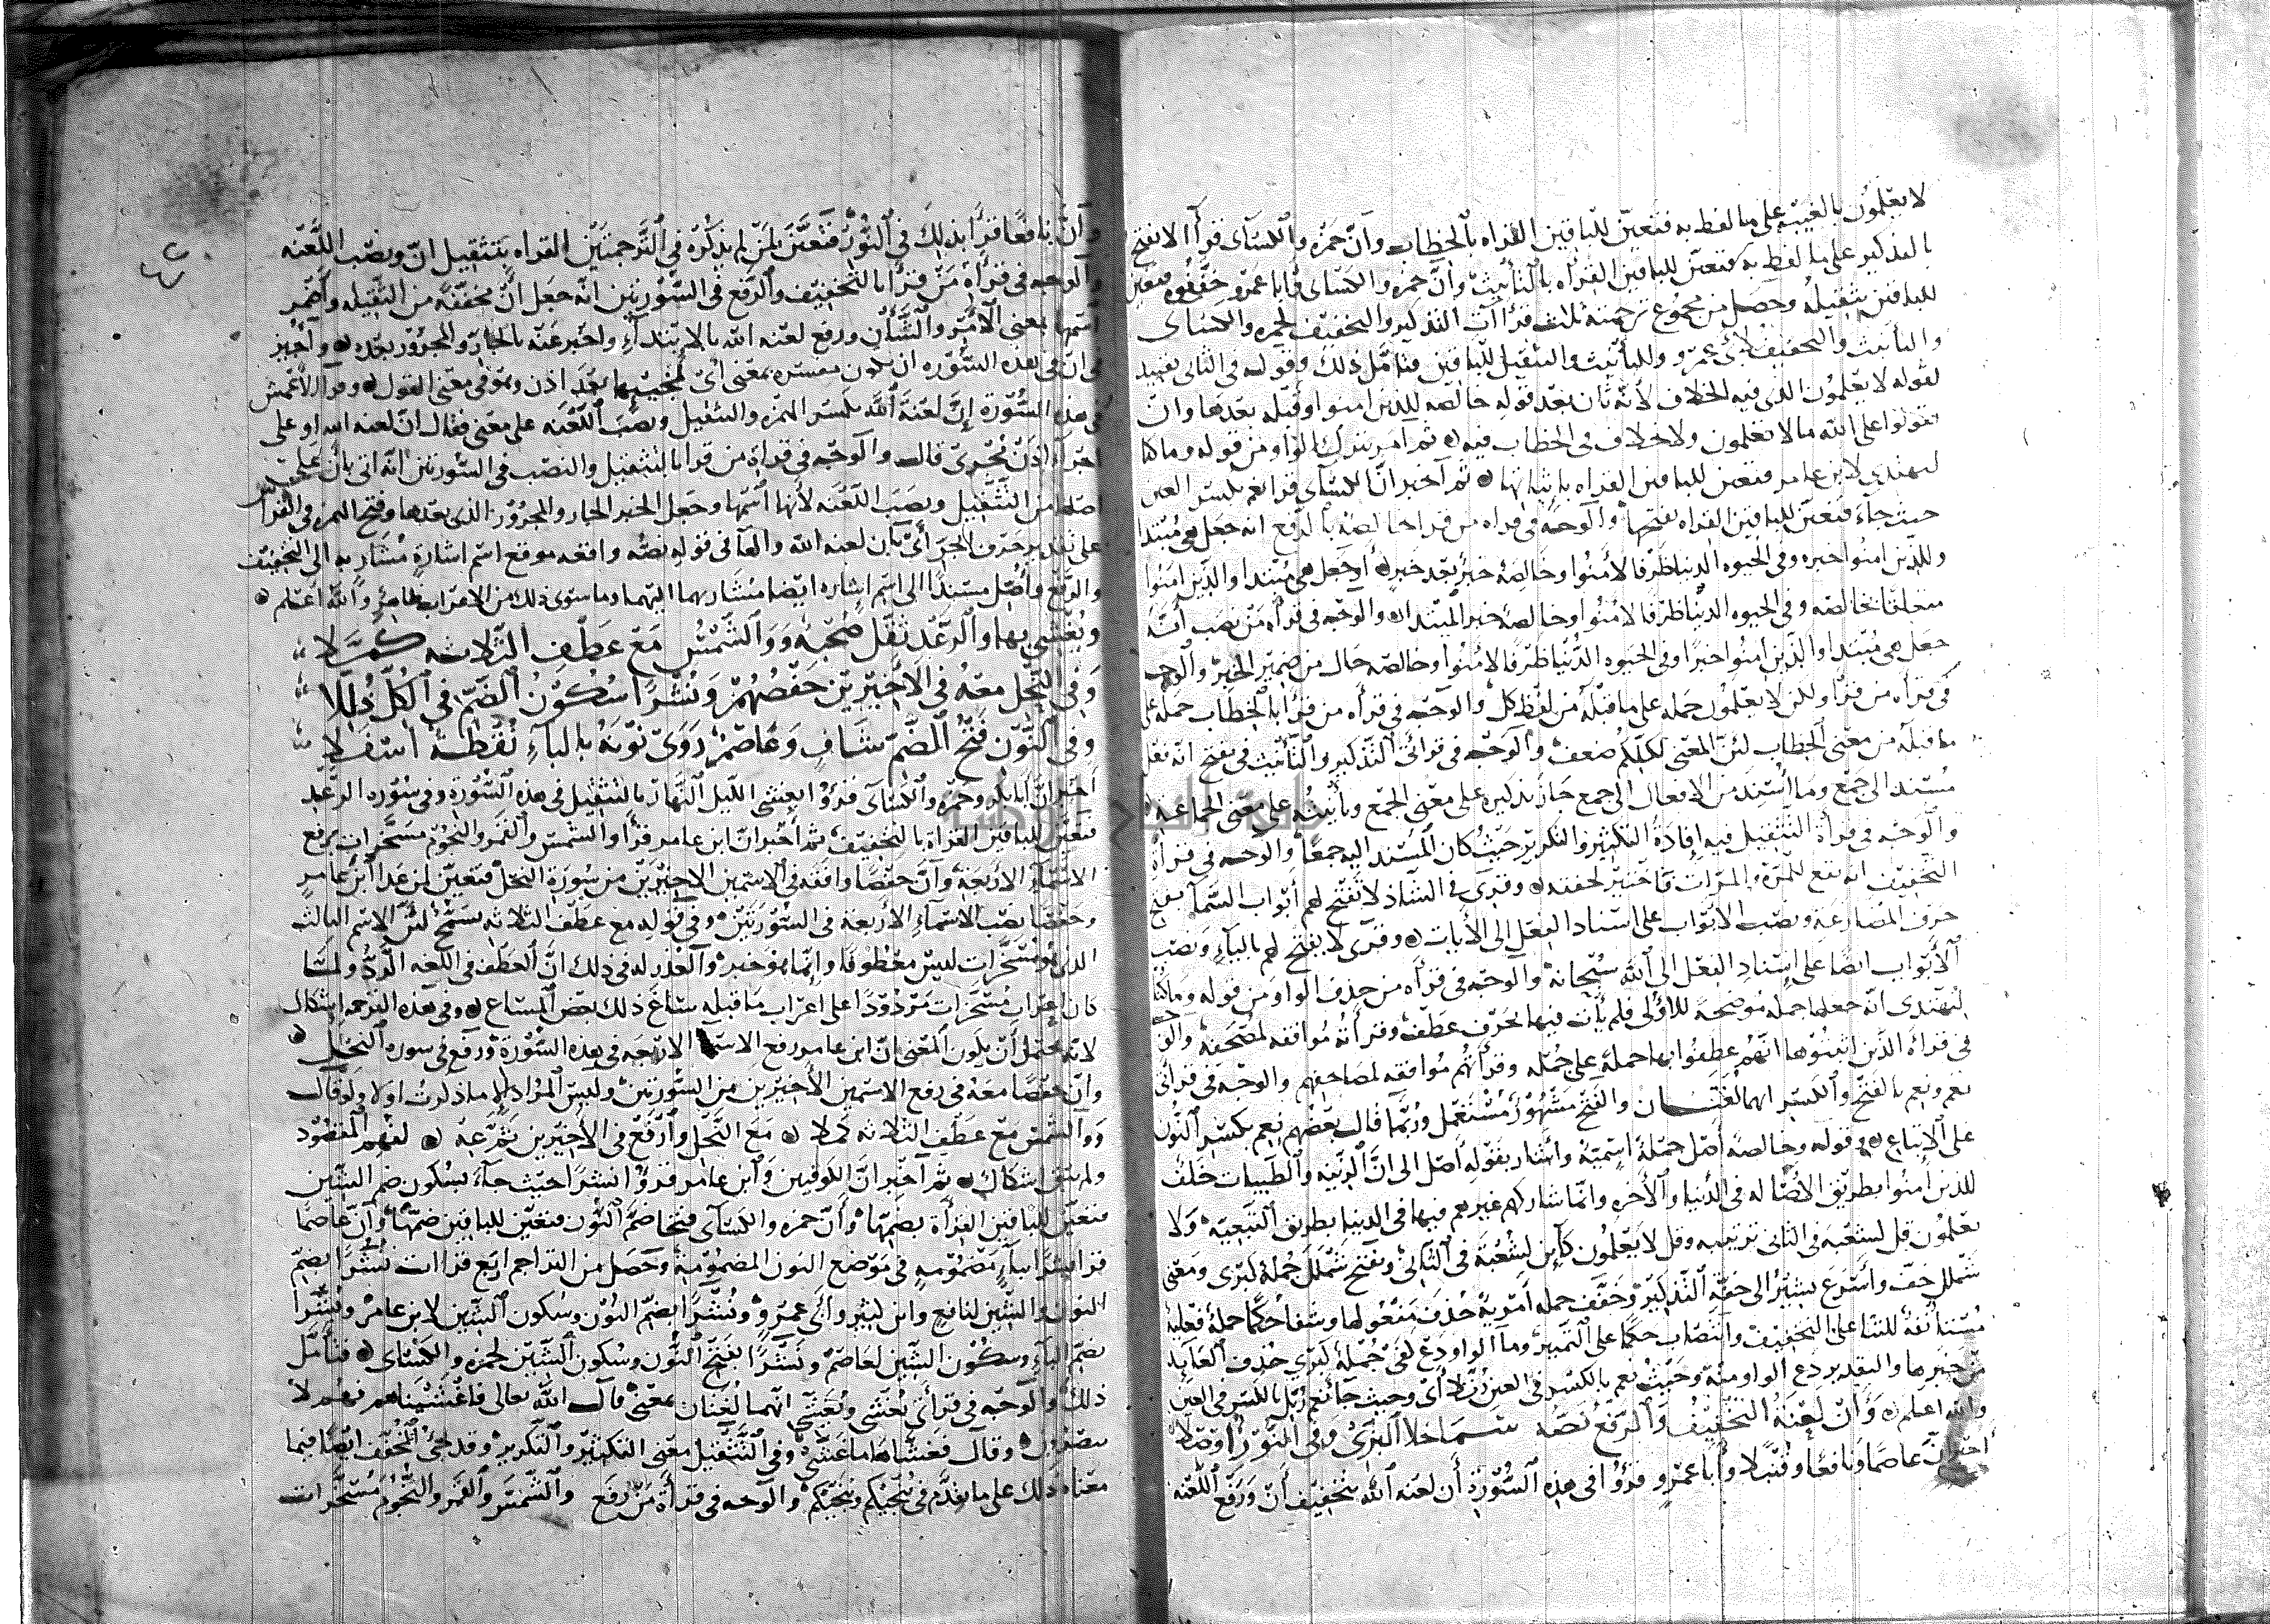 لا يعلمون بالغيبة على ما لفظ به فتعين للباقين القراءة بالخطاب وأن حمزة والكسائي قرآ لا يفتح
بالتذكير على ما لفظ به فتعين للباقين القراءة بالتأنيث وأن حمزة والكسائي وأبا عمرو خففوه فتعين
للباقين تثقيله وحصل من مجموع ترجمته ثلاث قراات التذكير والتخفيف لحمزة والكسائي
والتأنيث والتخفيف لأبي عمرو وللتأنيث والتثقيل للباقين فتأمل ذلك وقوله في الثاني تقييد
لقوله لا يعلمون الذي فيه الخلاف لأنه ثان بعد قوله خالصة للذين امنوا وقبله بعدها وأن
تقولوا على الله ما لا تعلمون ولا خلاف في الخطاب فيه ثم أمر بترك الواو من قوله وما كنا
لنهتدي لابن عامر فتعين للباقين القراءة بإثباتها ثم أخبر أن الكسائي قرأ نعم بكسر العين
حيث جاء فتعين للباقين القراءة بفتحها والوجه في قراءة من قرأ خالصة بالرفع أنه جعل هي مبتدا
وللذين امنوا خبره وفي الحيوة الدنيا ظرفا لآمنوا وخالصة خبر بعد خبر أو جعل هي مبتدا والذين امنوا
متعلقا بخالصة وفي الحيوة الدنيا ظرفا لآمنوا وخالصة خبر المبتدا والوجه في قراءة من نصب أنه
جعل هي مبتدا والذين امنوا خبرا وفي الحيوة الدنيا ظرفا لآمنوا وخالصة حال من ضمير الخبر والوجه
في قراءة من قرأ ولكن لا يعلمون حمله على ما قبله من لفظ كل والوجه في قراءة من قرأ بالخطاب حمله على
ما قبله من معنى الخطاب لأن المعنى لكلكم ضعف والوجه في قراءتي التذكير والتأنيث في يفتح أنه فعل
مسند إلى جمع وما أسند من الأفعال إلى جمع جاز تذكيره على معنى الجمع وتأنيثه على معنى الجماعة
والوجه في قراءة التثقيل فيه إفادة التكثير والتكرير حيث كان المسند إليه جمعا والوجه في قراءة
التخفيف أنه يقع للمرة والمرات فاختير لخفته وقرئ في الشاذ لا تفتح لهم أبواب السماء بفتح
حرف المضارعة ونصب الأبواب على إسناد الفعل إلى الأيات وقرئ لا يفتح لهم بالياء ونصب
الأبواب أيضا على إسناد الفعل إلى الله سبحانه والوجه في قراءة من حذف الواو من قوله وما كنا
لنهتدي أنه جعلها جملة موضحة للأولى فلم يأت فيها بحرف عطف وقراءته موافقة لمصحفه والوجه
في قراءة الذين اثبتوها أنهم عطفوا بها جملة على جملة وقراءتهم موافقة لمصاحفهم والوجه في قراءتي
نعم ونعم بالفتح والكسر أنهما لغتان والفتح مشهور مستعمل وربما قال بعضهم نعم بكسر النون
على الإتباع وقوله وخالصة أصل جملة إسمية وأشار بقوله أصل إلى أن الزينة والطيبات خلقت
للذين امنوا بطريق الأصالة في الدنيا والآخرة وإنما شاركهم غيرهم فيها في الدنيا بطريق التبعية ولا
يعلمون قل لشعبة في الثاني ترتيبه وقل لا يعلمون كائن لشعبة في الثاني ويفتح شمللا جملة كبرى ومعنى
شملل خف وأسرع يشير إلى خفة التذكير وخفف جملة أمرية حذف مفعولها وشفا حكما جملة فعلية
مستأنفة للثنا على التخفيف وانتصاب حكما على التمييز وما الواو دع لغى جملة كبرى حذف العائد
من خبرها والتقدير دع الواو منه وحيث نعم بالكسر في العين رتلا أي وحيث جا نعم رتل بالكسر في العين
والله اعلم وأن لعنة التخفيف والرفع نصه سما خلا البزي وفي النور أوصلا
أخبر أن عاصما ونافعا وقنبلا وأبا عمرو قرؤا في هذه السورة أن لعنة الله بتخفيف أن ورفع اللعنة
وأن نافعا قرأ بذلك في النور فتعين لمن لم يذكره في الترجمتين القراءة بتثقيل أن ونصب اللعنة
والوجه في قراءة من قرأ بالتخفيف والرفع في السورتين أنه جعل أن مخففة من الثقيلة وأضمر
اسمها بمعنى الأمر والشأن ورفع لعنة الله بالابتداء وأخبر عنه بالجار والمجرور بعده وأجيز
في أن في هذه السورة ان تكون مفسرة بمعنى أي لمجيئها بعد أذن وهو في معنى القول وقرأ الأعمش
في هذه السورة إن لعنة الله بكسر الهمزة والتثقيل ونصب اللعنة على معنى فقال ان لعنة الله أو على
إجراء أذن مجرى قال والوجه في قراءة من قرأ بالتثقيل والنصب في السورتين أنه أتى بأن على
أصلها من التثقيل ونصب اللعنة لأنها اسمها وجعل الخبر الجار والمجرور الذي بعدها وفتح الهمزة في القراءتين
على تقدير حرف الجر أي بأن لعنة الله والهاء في قوله نصه واقعة موقع اسم إشارة مشار به إلى التخفيف
والرفع وأصل مسندا إلى اسم إشارة أيضا مشار بهما إليهما وما سوى ذلك من الإعراب ظاهر والله أعلم
ويغشي بها والرعد ثقل صحبة ووالشمس مع عطف الثلاثة كملا
وفي النحل معه في الأخيرين حفصهم ونشرا سكون الضم في الكل ذللا
وفي النون فتح الضم شاف وعاصم روى نونه بالباء نقطة أسفلا
أخبر أن أبا بكر وحمزة والكسائي قرؤا يغشي الليل النهار بالتثقيل في هذه السورة وفي سورة الرعد
فتعين للباقين القراءة بالتخفيف ثم أخبر ان ابن عامر قرأ والشمس والقمر والنجوم مسخرات برفع
الأسماء الأربعة وأن حفصا وافقه في الاسمين الأخيرين من سورة النحل فتعين لمن عدا ابن عامر
وحفصا نصب الأسماء الأربعة في السورتين وفي قوله مع عطف الثلاثة تسمح لأن الإسم الثالث
الذي هو مسخرات ليس معطوفا وإنما هو خبر والعذر له في ذلك أن العطف في اللغة الرد ولما
كان إعراب مسخرات مردودا على إعراب ما قبله ساغ ذلك بعض المساغ وفي هذه الترجمة إشكال
لأنه يحتمل أن يكون المعنى أن ابن عامر رفع الأسماء الأربعة في هذه السورة ورفع في سورة النحل
وأن حفصا معه في رفع الاسمين الأخيرين من السورتين وليس المراد إلا ما ذكرت أولا ولو قال
ووالشمس مع عطف الثلاثة كملا مع النحل وارفع في الأخيرين شرعه لفهم المقصود
ولم يبق إشكال ثم أخبر أن الكوفيين وابن عامر قرؤا نشرا حيث جاء بسكون ضم الشين
فتعين للباقين القراءة بضمها وأن حمزة والكسائي فتحا ضم النون فتعين للباقين ضمها وأن عاصما
قرأ بشرا بباء مضمومة في موضع النون المضمومة وحصل من التراجم اربع قراات نشرا بضم
النون والشين لنافع وابن كثير وأبي عمرو ونشرا بضم النون وسكون الشين لابن عامر وبشرا
بضم الباء وسكون الشين لعاصم ونشرا بفتح النون وسكون الشين لحمزة والكسائي فتأمل
ذلك والوجه في قراءتي يغشي ويغشي أنهما لغتان بمعنى قال الله تعالى فأغشيناهم فهم لا
يبصرون وقال فغشاها ما غشى وفي التثقيل معنى التكثير والتكرير وقد جئ المخفف أيضا فيما
معناه ذلك على ما تقدم في ننجيكم وننجيكم والوجه في قراءة من رفع والشمس والقمر والنجوم مسخرات